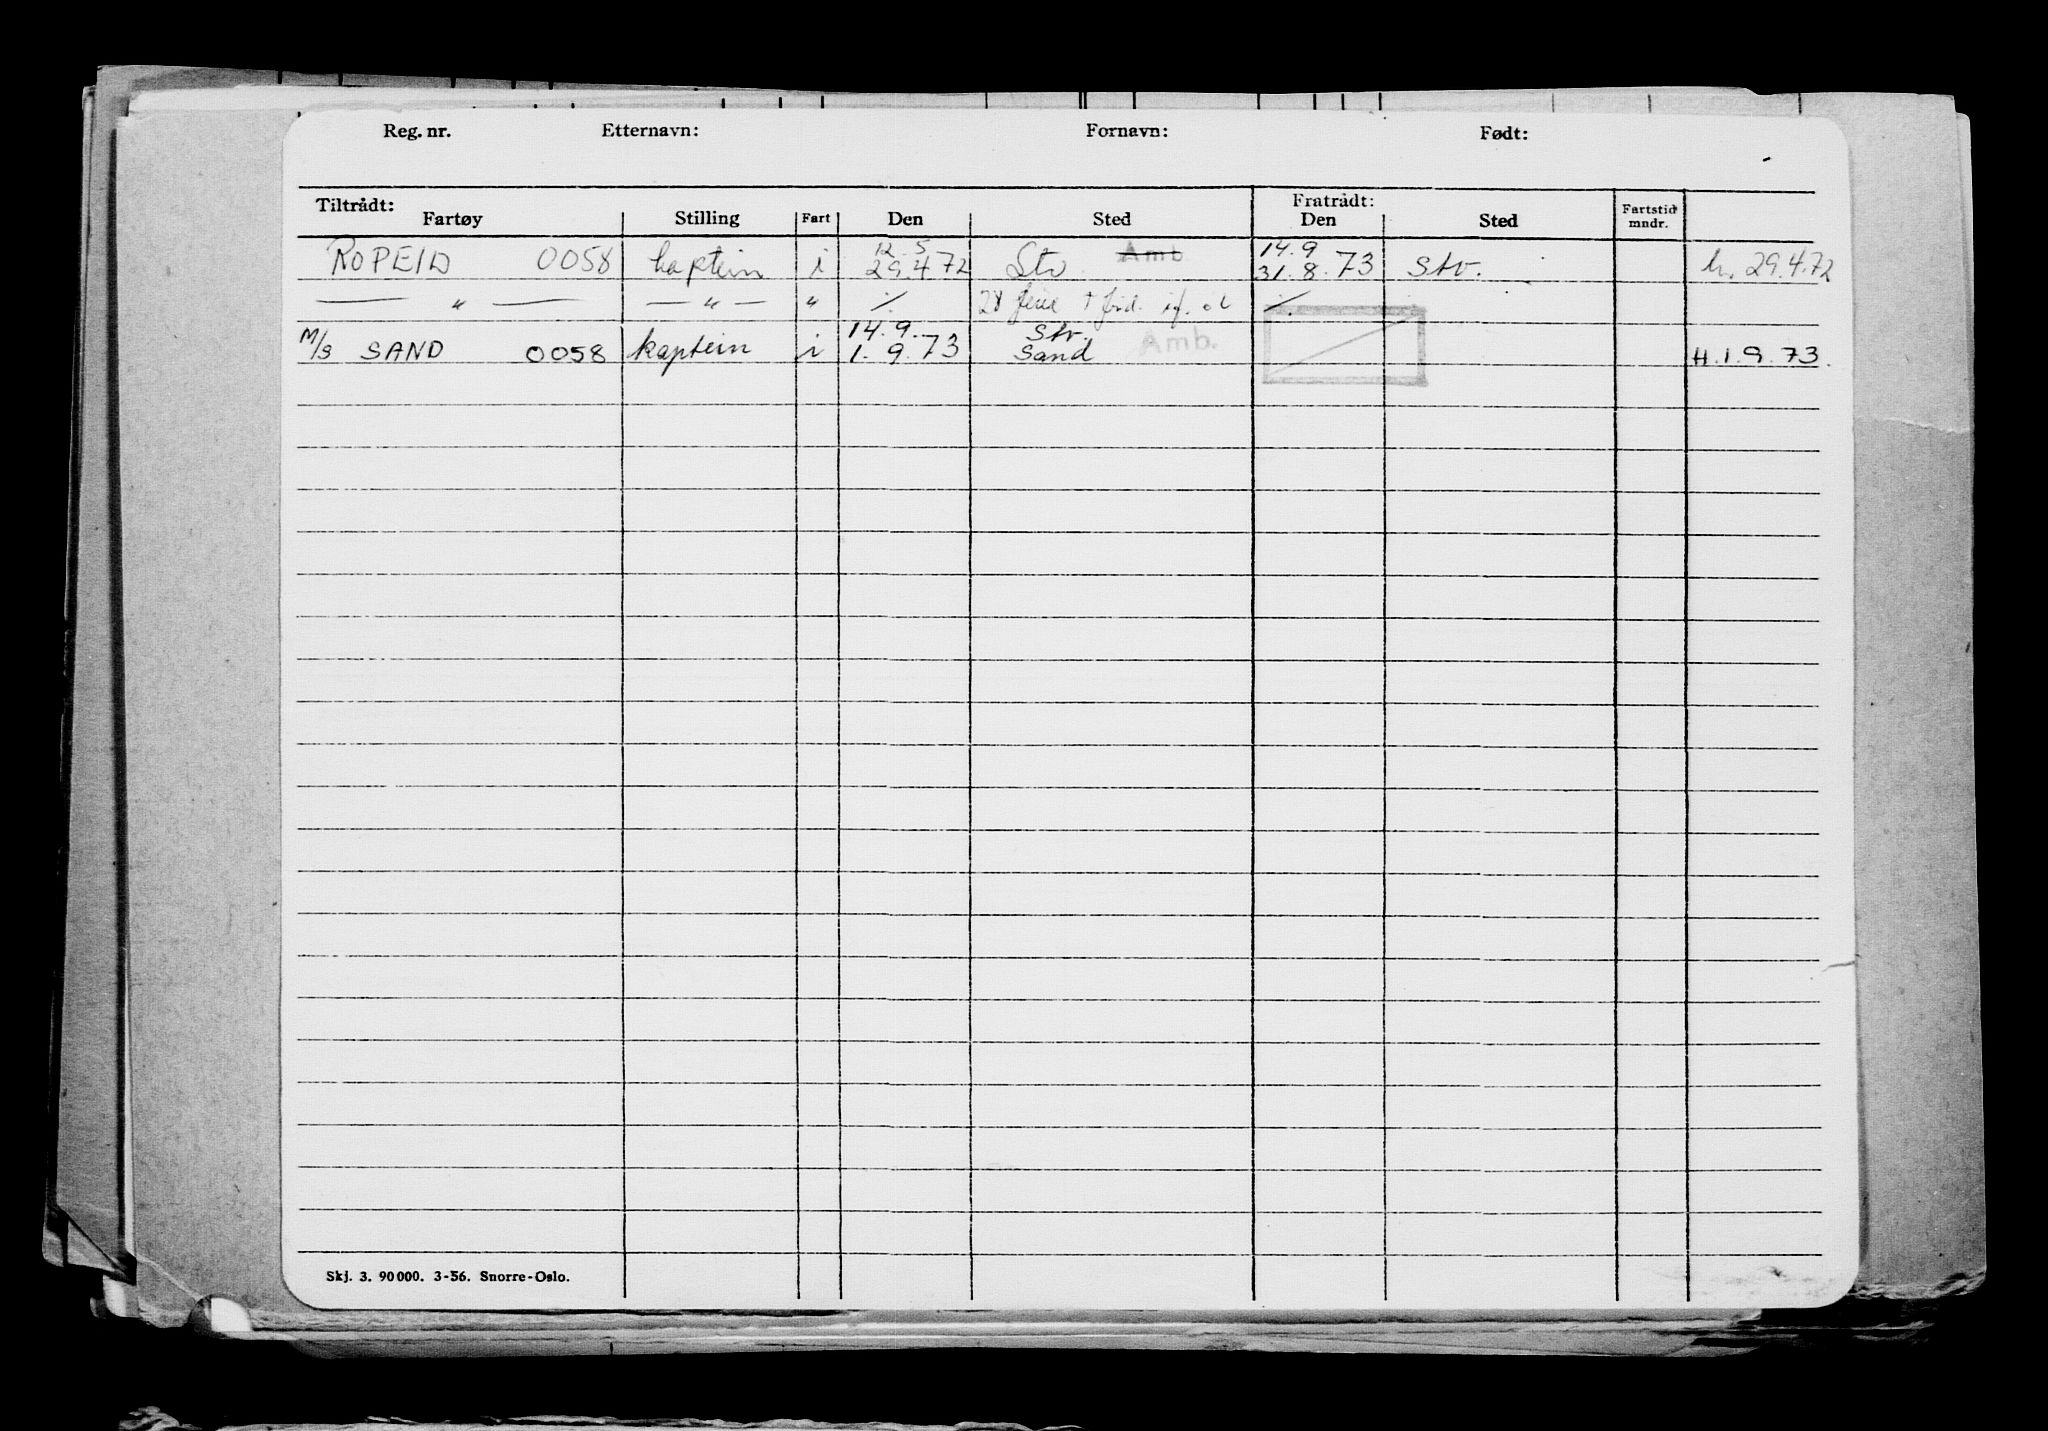 Reg. nr. Etternavn: Fornavn: Født:
Tiltrådt: Fratrådt:
Fartøy Stilling Fart Den Sted Den Sted Fartstid mndr.
12.5 14.9
ROPEID 0058 kaptein i 29.4 72 Stv. Amb 31.8.73 Stv. h. 29.4.72
— " — — " — " ·/. ·/.
14.9. Stv.
M/S SAND 0058 kaptein i 1.9.73 Sand Amb. H.1.9.73.
Skj. 3. 90000. 3-56. Snorre-Oslo.